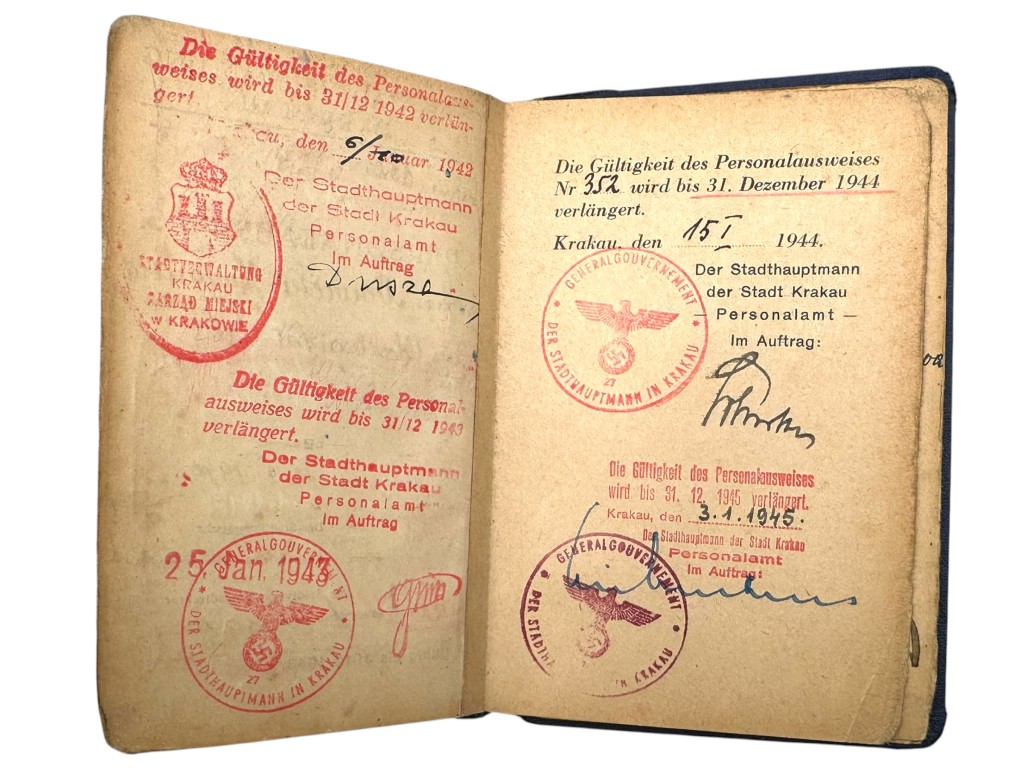 Die Gültigkeit des Personalaus-
weises wird bis 31/12 1942 verlän-
gert
den 6/ 1942
Der Stadthauptmann
der Stadt Krakau
Personalamt
Im Auftrag
STADTVERWALTUNG
KRAKAU
ZARZĄD MIEJSKI
W KRAKOWIE
Die Gültigkeit des Personal-
ausweises wird bis 31/12 1943
verlängert.
Der Stadthauptmann
der Stadt Krakau
Personalamt
Im Auftrag
25. Jan. 1943
GENERALGOUVERNEMENT
DER STADTHAUPTMANN IN KRAKAU
27
Die Gültigkeit des Personalausweises
Nr 352 wird bis 31. Dezember 1944
verlängert.
Krakau, den 15 I 1944.
Der Stadthauptmann
der Stadt Krakau
— Personalamt —
Im Auftrag:
GENERALGOUVERNEMENT
DER STADTHAUPTMANN IN KRAKAU
27
Die Gültigkeit des Personalausweises
wird bis 31. 12. 1945 verlängert.
Krakau, den 3.1.1945.
Der Stadthauptmann der Stadt Krakau
Personalamt
Im Auftrag:
GENERALGOUVERNEMENT
DER STADTHA IN KRAKAU